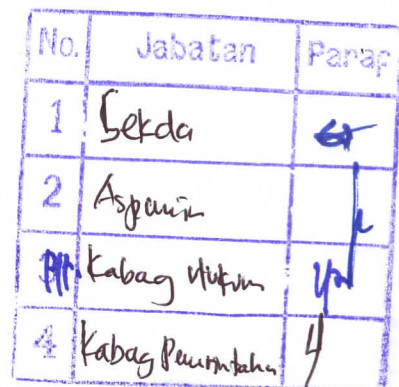 No. Jabatan Paraf
1 Sekda
2
Plt. Kabag Hukum
4 Kabag Pemerintahan